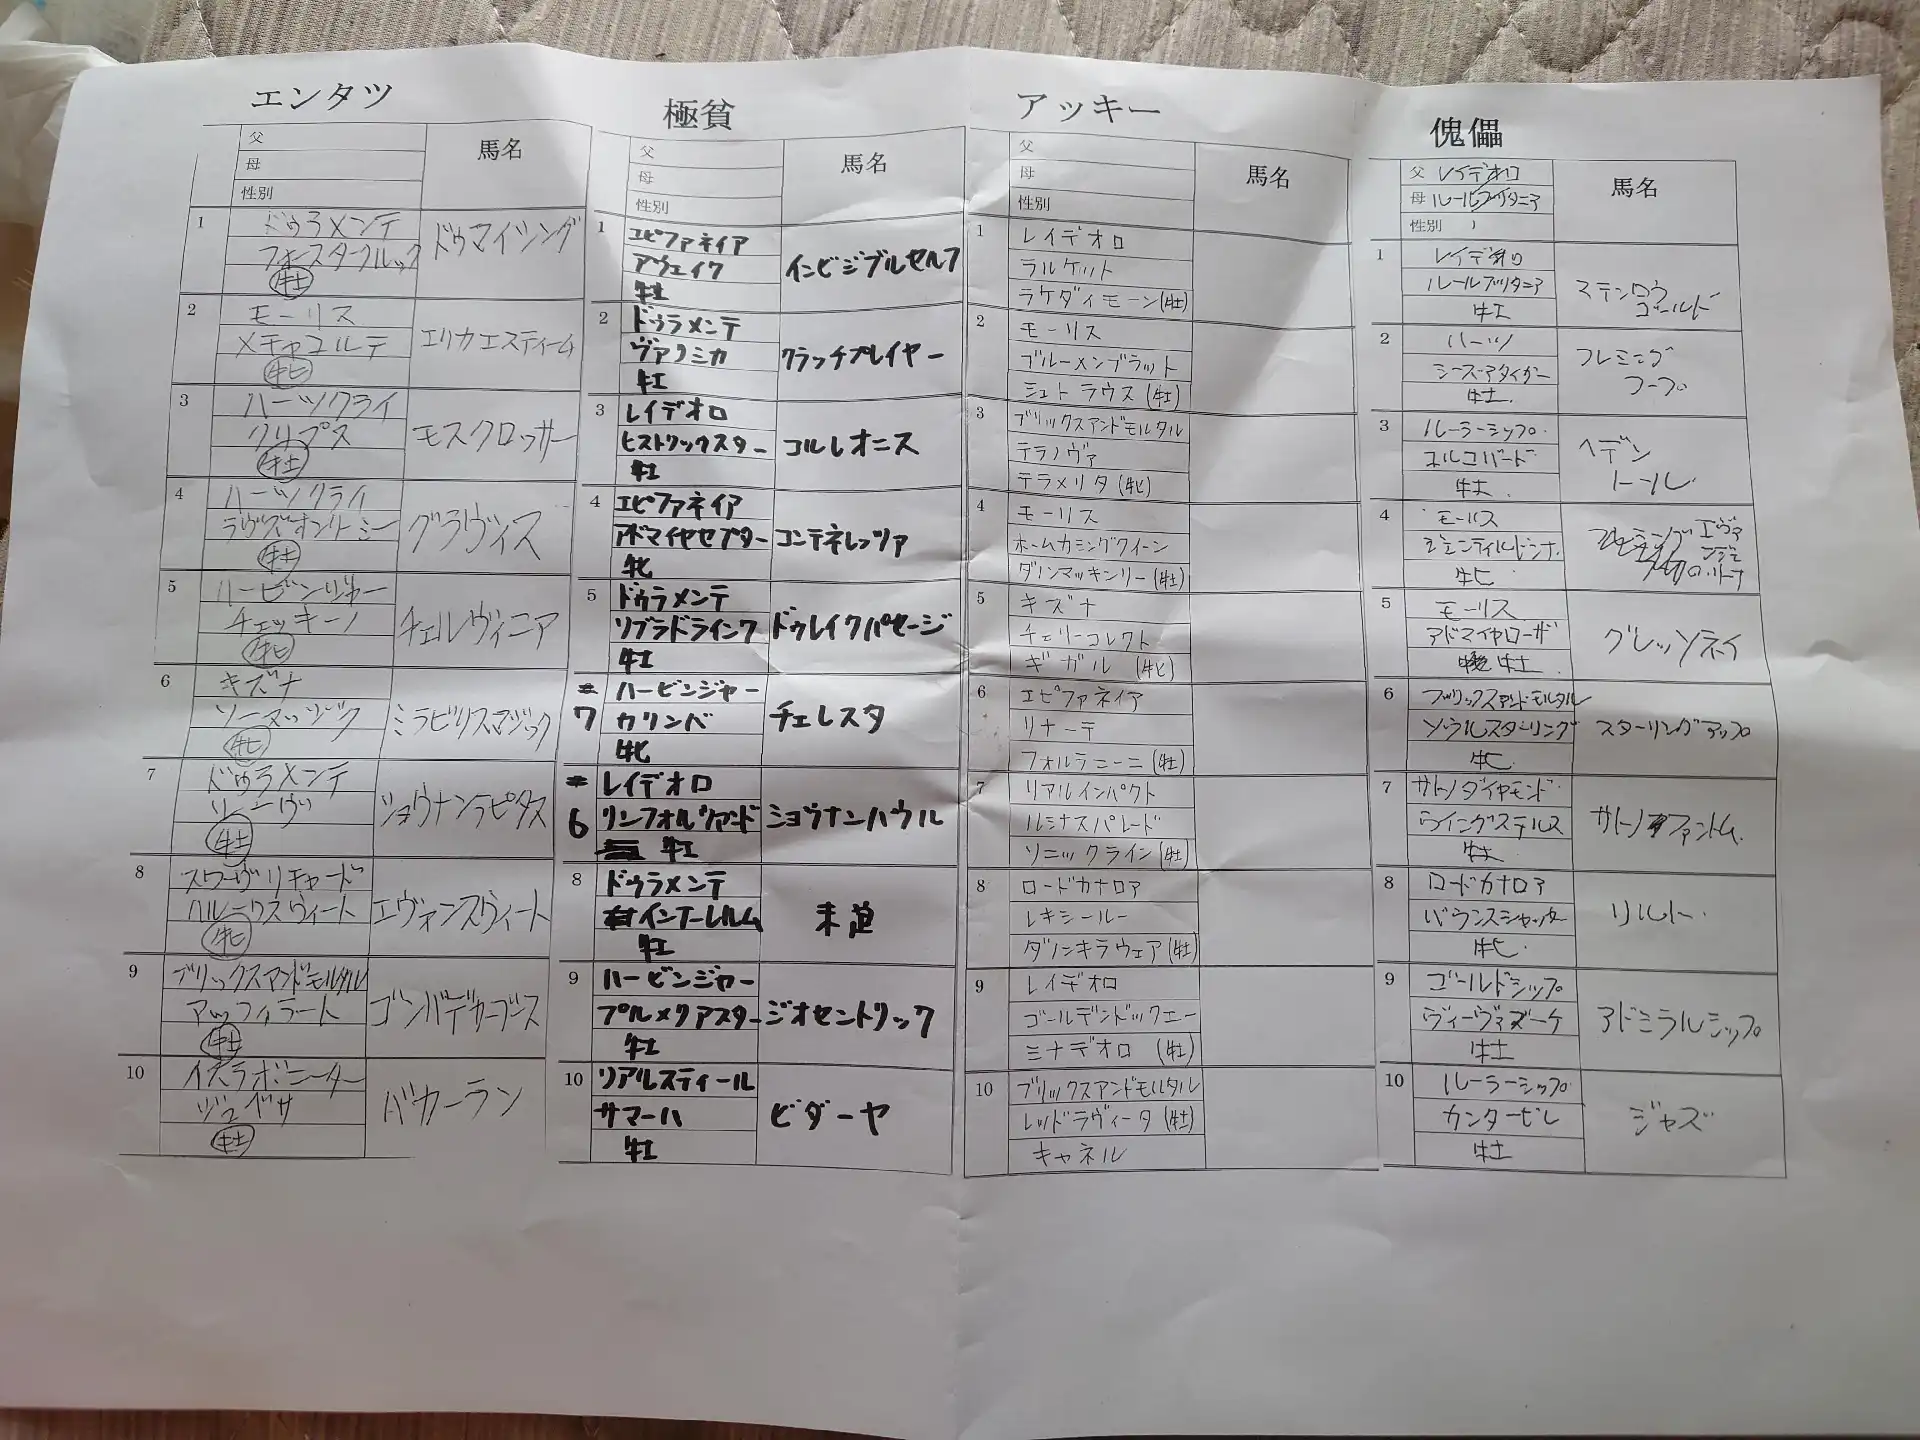 エンタツ
父
母
性別
馬名
1
ドゥラメンテ
フォースタークルック
牡
ドゥマイシング
2
モーリス
メチャコルテ
牝
エリカエスティーム
3
ハーツクライ
クリプス
牡
モスクロッサー
4
ハーツクライ
ラヴズオンリーミー
牡
グラヴィス
5
ハービンジャー
チェッキーノ
牝
チェルヴィニア
6
キズナ
ソーマジック
牝
ミラビリスマジック
7
ドゥラメンテ
ソーニーヴ
牡
ショウナンラピダス
8
スワーヴリチャード
ハルーワスウィート
牝
エヴァンスウィート
9
ブリックスアンドモルタル
アッフィラート
牡
ゴンバデカーブース
10
イスラボニータ
ジュベサ
牡
バカーラン
極貧
父
母
性別
馬名
1
エピファネイア
アウェイク
牡
インビジブルセルフ
2
ドゥラメンテ
ヴァシミカ
牡
クラッチプレイヤー
3
レイデオロ
ヒストリックスター
牡
コルレオニス
4
エピファネイア
アドマイヤセプター
牝
コンテネレッツァ
5
ドゥラメンテ
リブラドライング
牡
ドゥレイクパセージ
7
ハービンジャー
カリンバ
牝
チェレスタ
6
レイデオロ
リンフォルツァンド
牡
ショウナンハウル
8
ドゥラメンテ
インアーレルム
牡
未迫
9
ハービンジャー
プルメリアスター
牡
ジオセントリック
10
リアルスティール
サマーハ
牡
ビダーヤ
アッキー
父
母
性別
馬名
1
レイデオロ
ラルケット
ラケダイモーン(牡)
2
モーリス
ブルーメンブラット
シュトラウス(牡)
3
ブリックスアンドモルタル
テラノヴァ
テラメリタ(牝)
4
モーリス
ホームカミングクイーン
ダノンマッキンリー(牡)
5
キズナ
チェリーコレクト
ギガル(牝)
6
エピファネイア
リナーテ
フォルラニーニ(牡)
7
リアルインパクト
ルミナスパレード
ソニックライン(牡)
8
ロードカナロア
レキシールー
ダノンキラウェア(牡)
9
レイデオロ
ゴールデンドックエー
ミナデオロ(牡)
10
ブリックスアンドモルタル
レッドラヴィータ(牡)
キャネル
傀儡
父 レイデオロ
母 ルールブリタニア
性別
馬名
1
レイデオロ
ルールブリタニア
牡
ステンロウ
ゴールド
2
ハーツ
シーズアタイガー
牡
フレミング
フープ
3
ルーラーシップ
コルコバード
牡
ヘデン
トール
4
モーリス
ジェンティルドンナ
牝
エヴァ
ンジェ
リーナ
5
モーリス
アドマイヤローザ
牡
グレッソネイ
6
ブリックスアンドモルタル
ソウルスターリング
牝
スターリングアップ
7
サトノダイヤモンド
ウイングステルス
牡
サトノファントム
8
ロードカナロア
バウンスシャッセ
牝
リルト
9
ゴールドシップ
ヴィーヴァブーケ
牡
アドミラルシップ
10
ルーラーシップ
カンタービレ
牡
ジャズ